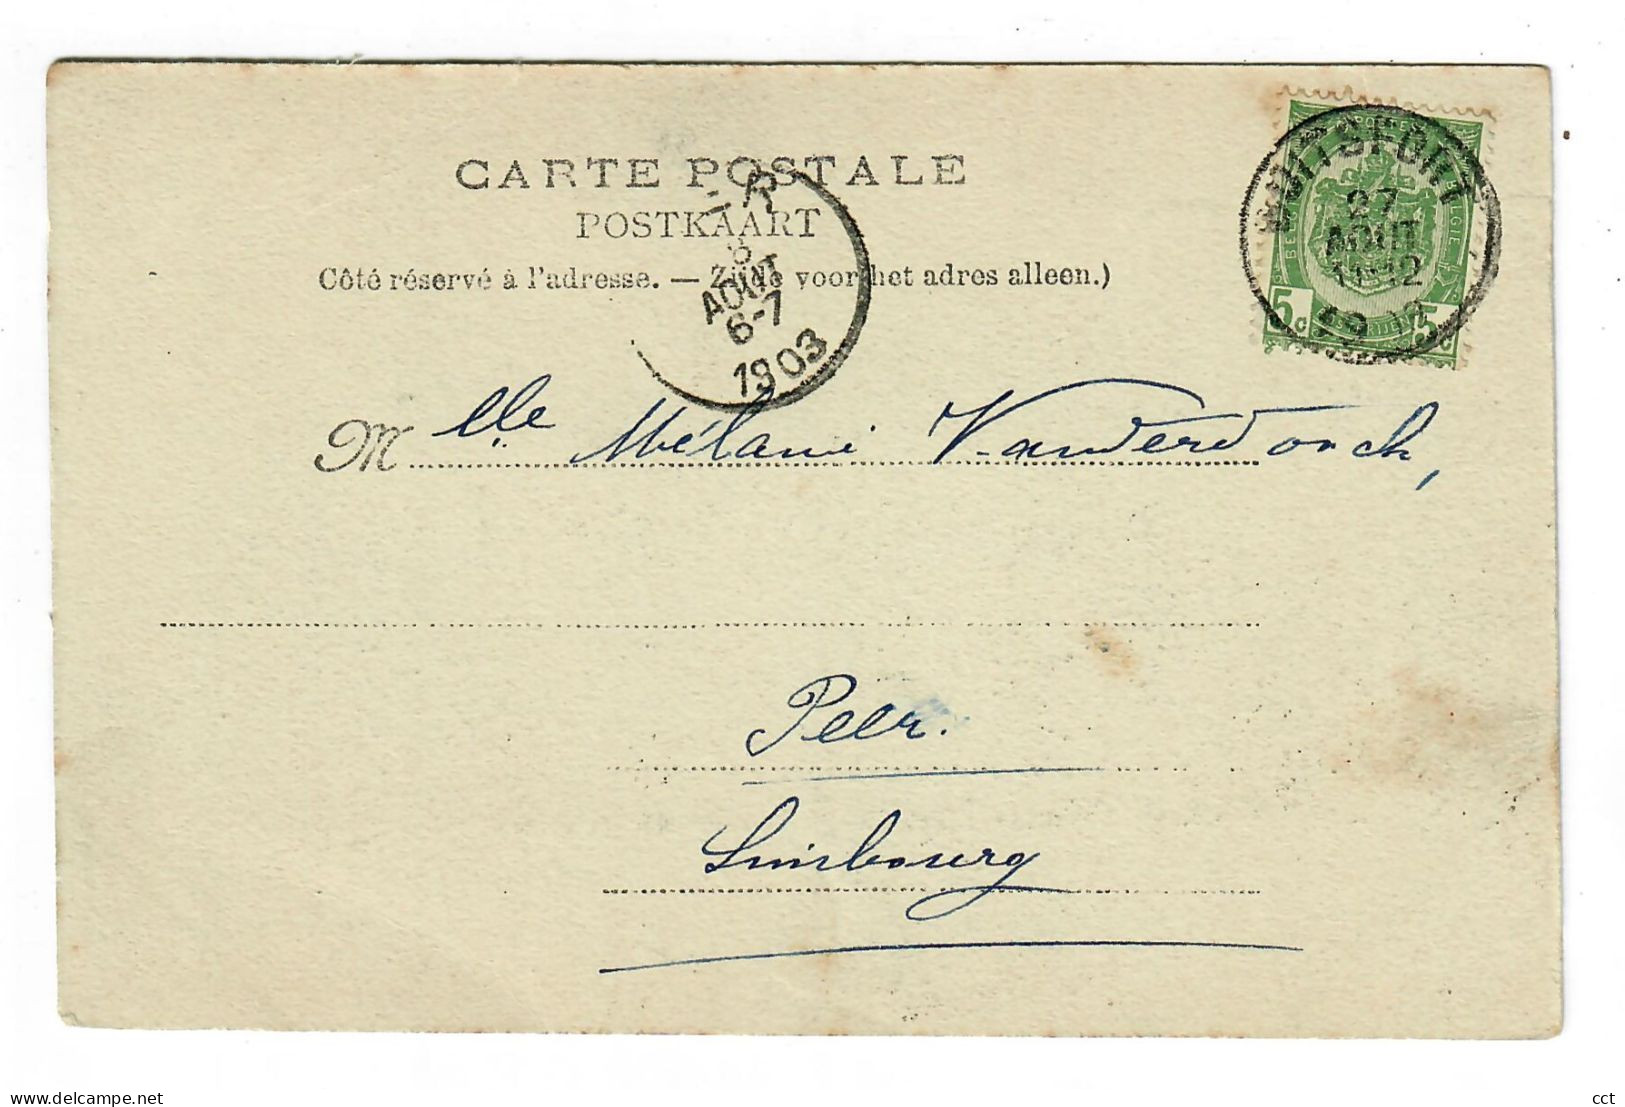 CARTE POSTALE
POSTKAART
Côté réservé à l'adresse. — Zijde voor het adres alleen.)
R
8
AOUT
6-7
1903
BOITSFORT
27
AOUT
11-12
BELGIE
5c 5c
Mlle Mélanie Vanderdonck,
Peer.
Limbourg
cct